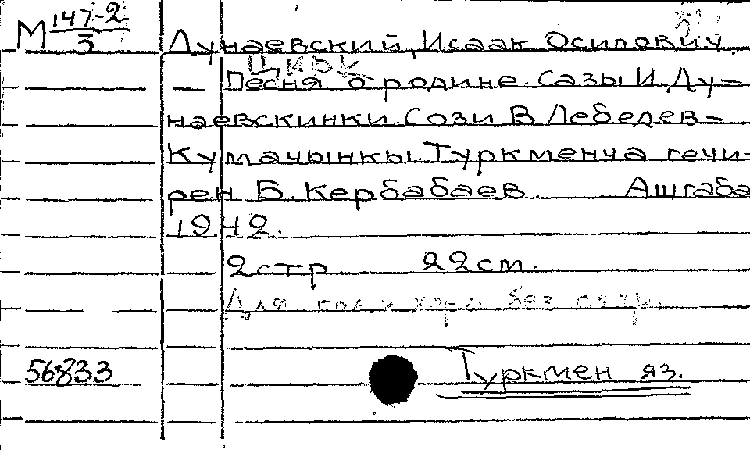 М 147-2/3
Дунаевский, Исаак Осипович
Цирк
— Песня о родине. Сазы И. Ду-
наевскинки Сози В. Лебедев-
Кумачынкы Туркменча гечи-
рен Б. Кербабаев Ашгаба
1942.
2 стр 22 см.
Для гол и хора без
56833
Туркмен яз.